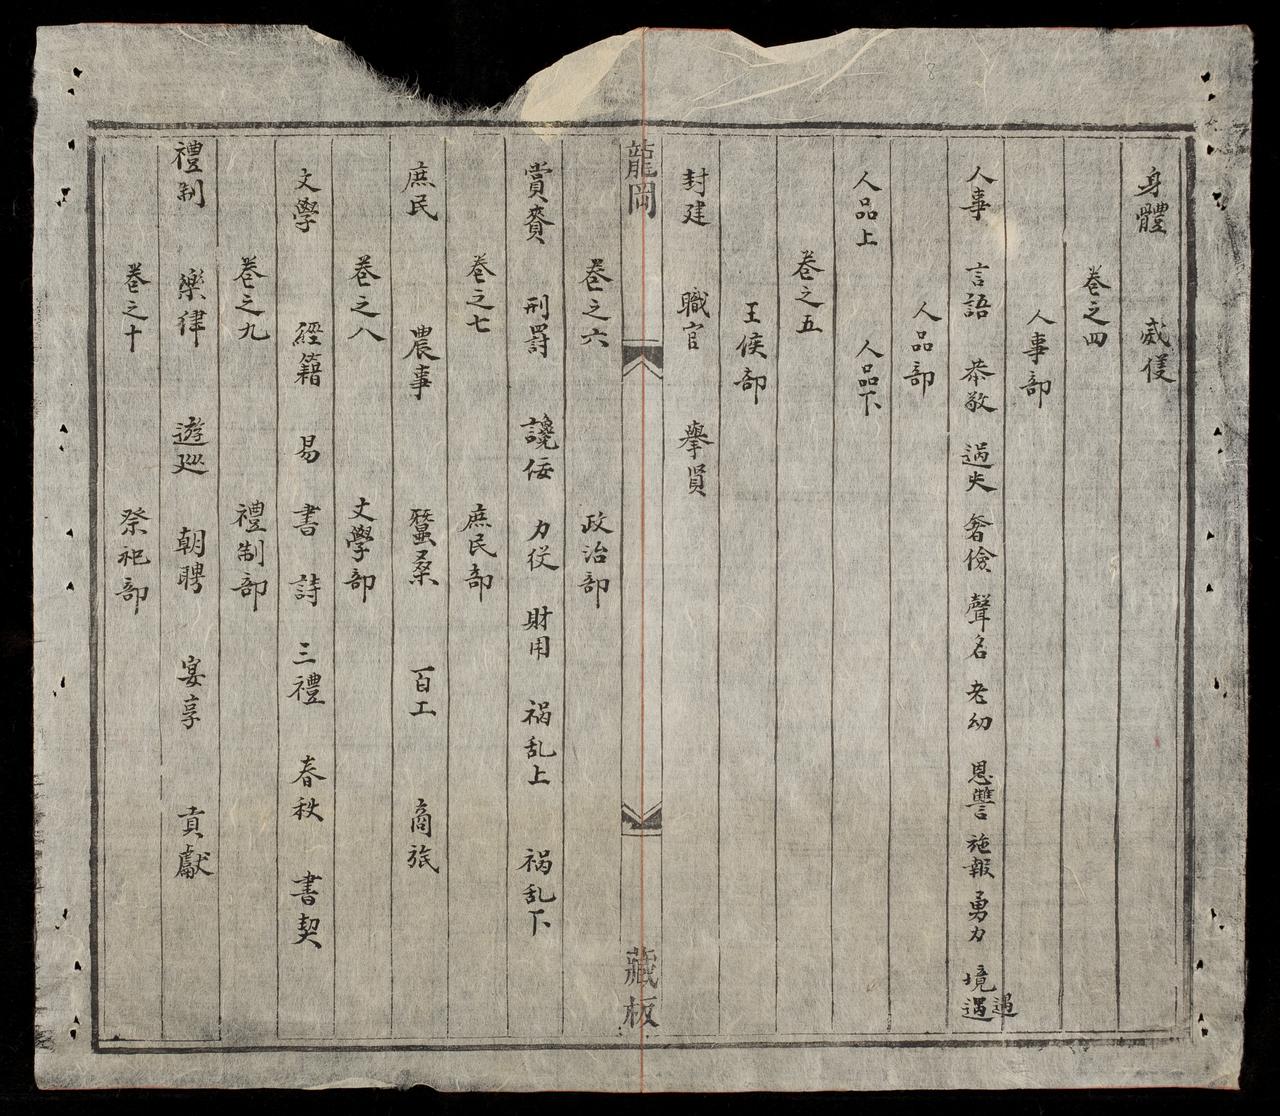 身體 威儀
卷之四
人事部
人事 言語 恭敬 過失 奢儉 聲名 老幼 恩讐 施報 勇力 境遇 遇
人品部
人品上 人品下
卷之五
王侯部
封建 職官 擧賢
龍岡 藏板
卷之六 政治部
賞賚 刑罸 讒佞 力役 財用 禍乱上 禍乱下
卷之七 庶民部
庶民 農事 蠶桑 百工 商旅
卷之八 文學部
文學 經籍 易 書 詩 三禮 春秋 書契
卷之九 禮制部
禮制 樂律 遊廵 朝聘 宴享 貢獻
卷之十 祭祀部